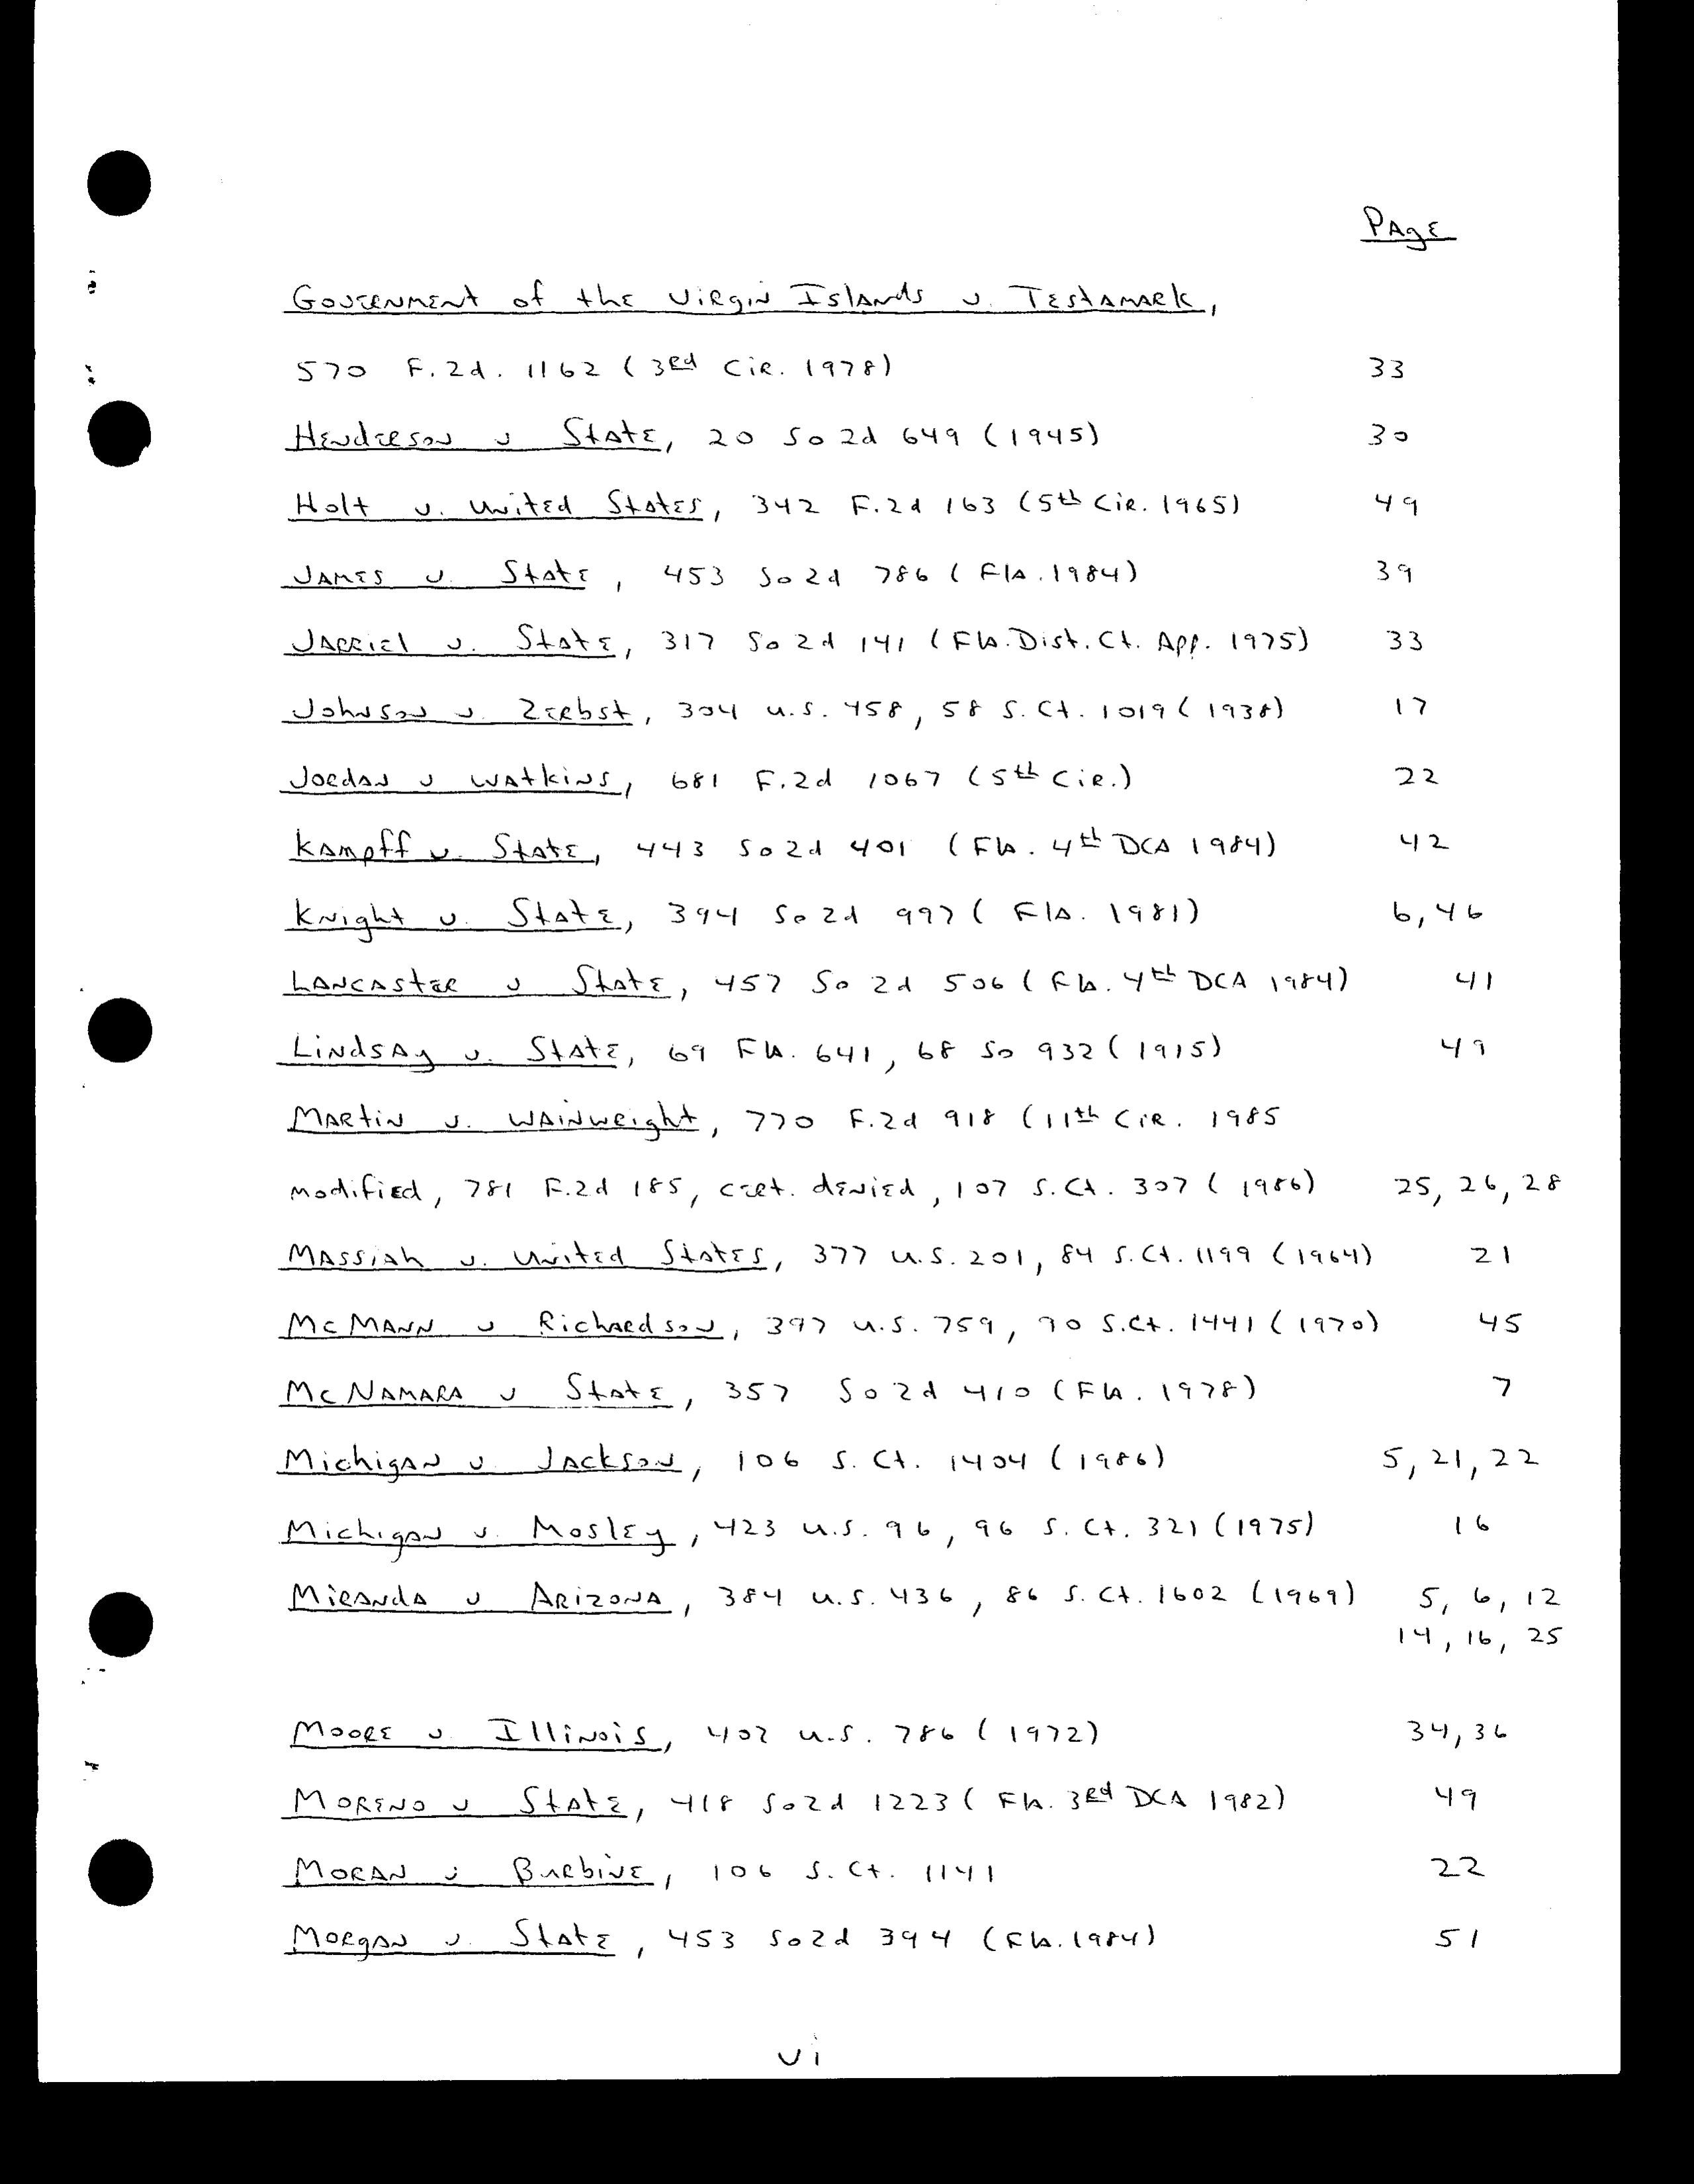 Page
Government of the Virgin Islands v. Testamark,
570 F.2d. 1162 (3rd Cir. 1978) 33
Henderson v State, 20 So 2d 649 (1945) 30
Holt v. United States, 342 F.2d 163 (5th Cir. 1965) 49
James v. State, 453 So 2d 786 (Fla. 1984) 39
Jarriel v. State, 317 So 2d 141 (Fla. Dist. Ct. App. 1975) 33
Johnson v Zerbst, 304 U.S. 458, 58 S. Ct. 1019 (1938) 17
Jordan v Watkins, 681 F.2d 1067 (5th Cir.) 22
Kampff v. State, 443 So 2d 401 (Fla. 4th DCA 1984) 42
Knight v. State, 394 So 2d 997 (Fla. 1981) 6, 46
Lancaster v State, 457 So 2d 506 (Fla. 4th DCA 1984) 41
Lindsay v. State, 69 Fla. 641, 68 So 932 (1915) 49
Martin v. Wainwright, 770 F.2d 918 (11th Cir. 1985
modified, 781 F.2d 185, cert. denied, 107 S. Ct. 307 (1986) 25, 26, 28
Massiah v. United States, 377 U.S. 201, 84 S. Ct. 1199 (1964) 21
McMann v Richardson, 397 U.S. 759, 90 S. Ct. 1441 (1970) 45
McNamara v State, 357 So 2d 410 (Fla. 1978) 7
Michigan v Jackson, 106 S. Ct. 1404 (1986) 5, 21, 22
Michigan v. Mosley, 423 U.S. 96, 96 S. Ct. 321 (1975) 16
Miranda v Arizona, 384 U.S. 436, 86 S. Ct. 1602 (1969) 5, 6, 12
14, 16, 25
Moore v. Illinois, 402 U.S. 786 (1972) 34, 36
Moreno v State, 418 So 2d 1223 (Fla. 3rd DCA 1982) 49
Moran v Burbine, 106 S. Ct. 1141 22
Morgan v. State, 453 So 2d 394 (Fla. 1984) 51
vi